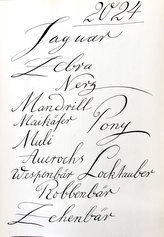 2024
Jaguar
Zebra
Nerz
Mandrill
Maikäfer Pony
Muli
Aurochs
Wespenbär Locktauber
Robbenbär
Zehenbär